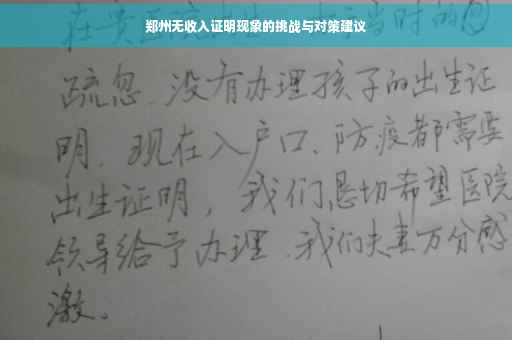 郑州无收入证明现象的挑战与对策建议
时的
疏忽、没有办理孩子的出生证
明、现在入户口、防疫都需要
出生证明，我们恳切希望医院
领导给予办理、我们夫妻万分感
激。